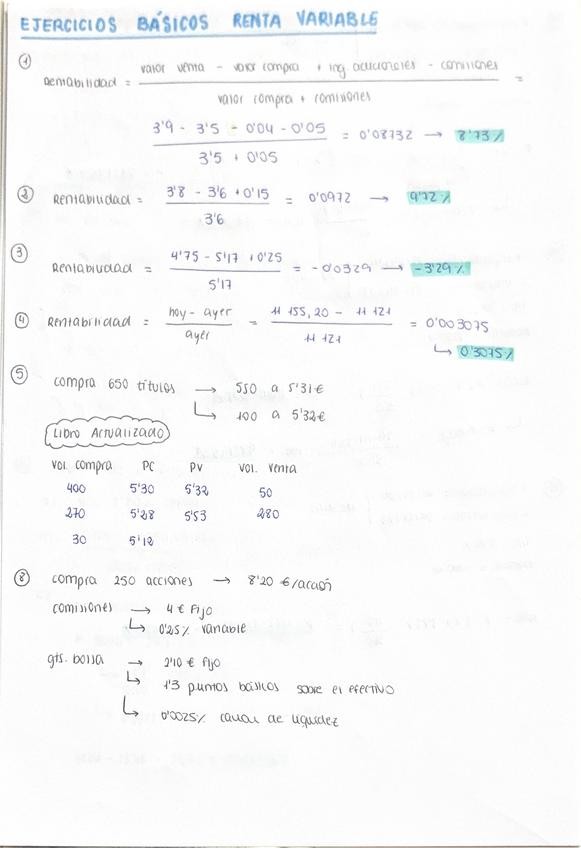 EJERCICIOS BÁSICOS RENTA VARIABLE
① Rentabilidad = (valor venta - valor compra + ing adicionales - comisiones) / (valor compra + comisiones) =
(3'9 - 3'5 - 0'04 - 0'05) / (3'5 + 0'05) = 0'08732 → 8'73%
② Rentabilidad = (3'8 - 3'6 + 0'15) / 3'6 = 0'0972 → 9'72%
③ Rentabilidad = (4'75 - 5'17 + 0'25) / 5'17 = -0'0329 → -3'29%
④ Rentabilidad = (hoy - ayer) / ayer = (11 155,20 - 11 121) / 11 121 = 0'003075
↳ 0'3075%
⑤ compra 650 títulos → 550 a 5'31€
↳ 100 a 5'32€
Libro Actualizado
Vol. compra PC PV Vol. venta
400 5'30 5'32 50
270 5'28 5'53 280
30 5'12
⑧ compra 250 acciones → 8'20 €/acción
comisiones → 4€ Fijo
↳ 0'25% variable
gts. bolsa → 2'10 € fijo
↳ 1'3 puntos básicos sobre el efectivo
↳ 0'0025% canon de liquidez